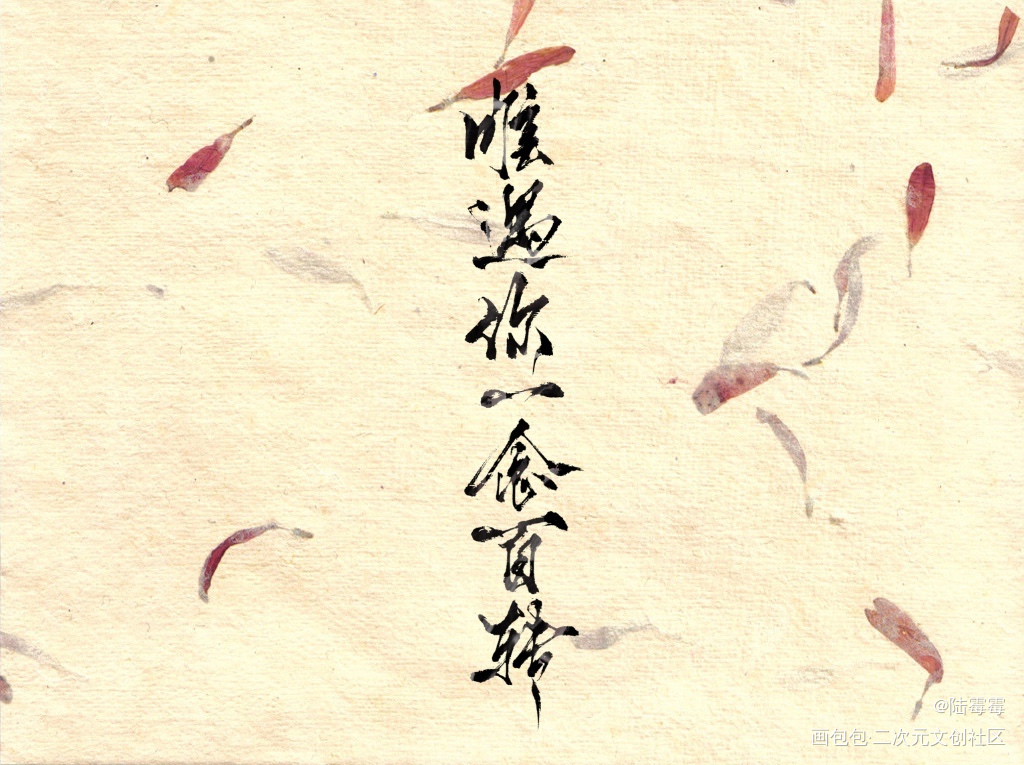 唯遇你一念百转
@陆霉霉
画包包·二次元文创社区